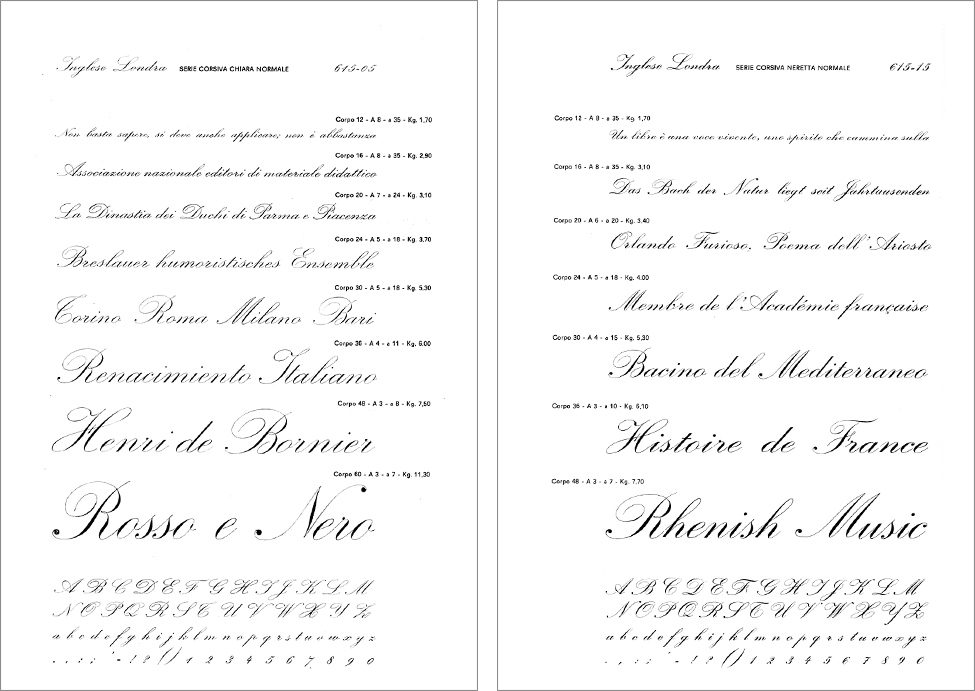 Inglese Londra SERIE CORSIVA CHIARA NORMALE 615-05
Corpo 12 - A 8 - a 35 - Kg. 1,70
Non basta sapere, si deve anche applicare; non è abbastanza
Corpo 16 - A 8 - a 35 - Kg. 2,90
Associazione nazionale editori di materiale didattico
Corpo 20 - A 7 - a 24 - Kg. 3,10
La Dinastia dei Duchi di Parma e Piacenza
Corpo 24 - A 5 - a 18 - Kg. 3,70
Breslauer humoristisches Ensemble
Corpo 30 - A 5 - a 18 - Kg. 5,30
Torino Roma Milano Bari
Corpo 36 - A 4 - a 11 - Kg. 6,00
Renacimiento Italiano
Corpo 48 - A 3 - a 8 - Kg. 7,50
Henri de Bornier
Corpo 60 - A 3 - a 7 - Kg. 11,30
Rosso e Nero
A B C D E F G H I J K L M
N O P Q R S T U V W X Y Z
a b c d e f g h i j k l m n o p q r s t u v w x y z
. , : ; ' - ! ? ( ) 1 2 3 4 5 6 7 8 9 0
Inglese Londra SERIE CORSIVA NERETTA NORMALE 615-15
Corpo 12 - A 8 - a 35 - Kg. 1,70
Un libro è una voce vivente, uno spirito che cammina sulla
Corpo 16 - A 8 - a 35 - Kg. 3,10
Das Buch der Natur liegt seit Jahrtausenden
Corpo 20 - A 6 - a 20 - Kg. 3,40
Orlando Furioso, Poema dell'Ariosto
Corpo 24 - A 5 - a 18 - Kg. 4,00
Membre de l'Académie française
Corpo 30 - A 4 - a 15 - Kg. 5,30
Bacino del Mediterraneo
Corpo 36 - A 3 - a 10 - Kg. 6,10
Histoire de France
Corpo 48 - A 3 - a 7 - Kg. 7,70
Rhenish Music
A B C D E F G H I J K L M
N O P Q R S T U V W X Y Z
a b c d e f g h i j k l m n o p q r s t u v w x y z
. , : ; ' - ! ? ( ) 1 2 3 4 5 6 7 8 9 0